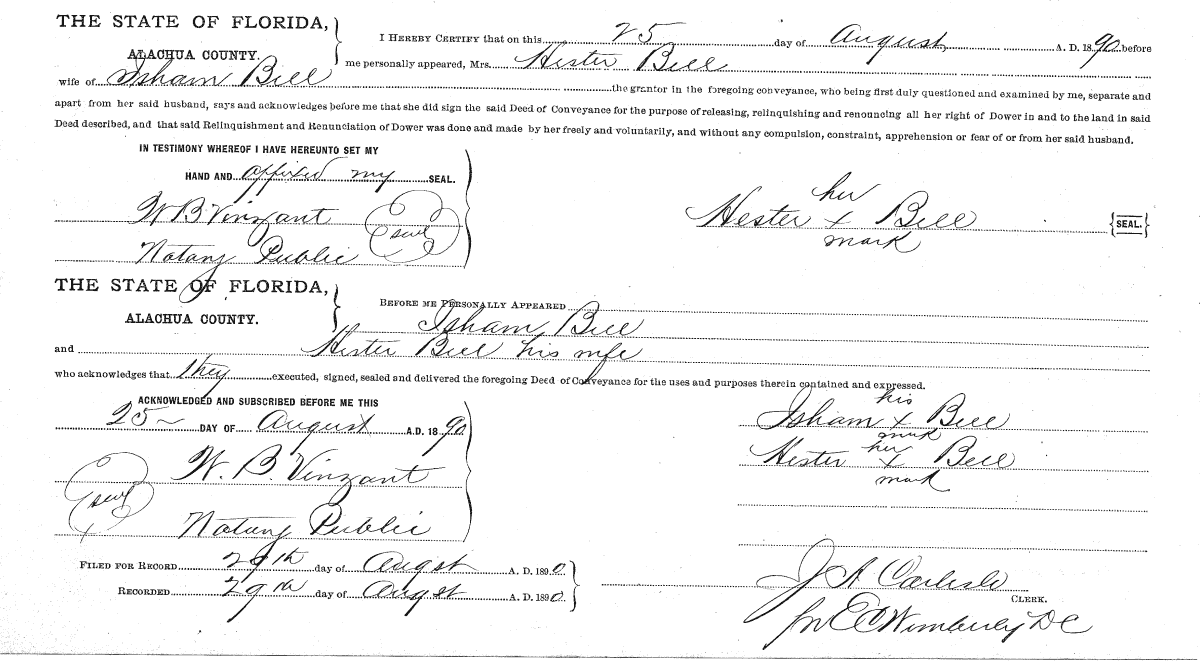 THE STATE OF FLORIDA,
ALACHUA COUNTY.
I HEREBY CERTIFY that on this 25 day of August A. D. 1890 before
me personally appeared, Mrs. Hester Bell
wife of Isham Bell the grantor in the foregoing conveyance, who being first duly questioned and examined by me, separate and
apart from her said husband, says and acknowledges before me that she did sign the said Deed of Conveyance for the purpose of releasing, relinquishing and renouncing all her right of Dower in and to the land in said
Deed described, and that said Relinquishment and Renunciation of Dower was done and made by her freely and voluntarily, and without any compulsion, constraint, apprehension or fear of or from her said husband.
IN TESTIMONY WHEREOF I HAVE HEREUNTO SET MY
HAND AND affixed my SEAL.
W B Vinzant
Seal
Notary Public
her
Hester x Bell {SEAL.}
mark
THE STATE OF FLORIDA,
ALACHUA COUNTY.
BEFORE ME PERSONALLY APPEARED
Isham Bell
and Hester Bell his wife
who acknowledges that they executed, signed, sealed and delivered the foregoing Deed of Conveyance for the uses and purposes therein contained and expressed.
ACKNOWLEDGED AND SUBSCRIBED BEFORE ME THIS
25~ DAY OF August A.D. 1890
W. B. Vinzant
Seal
Notary Public
his
Isham x Bell
mark
her
Hester x Bell
mark
FILED FOR RECORD 29th day of Augst A. D. 1890.
RECORDED 29th day of Augst A. D. 1890.
J A Carlisle
CLERK.
pr E C Wimberly DC